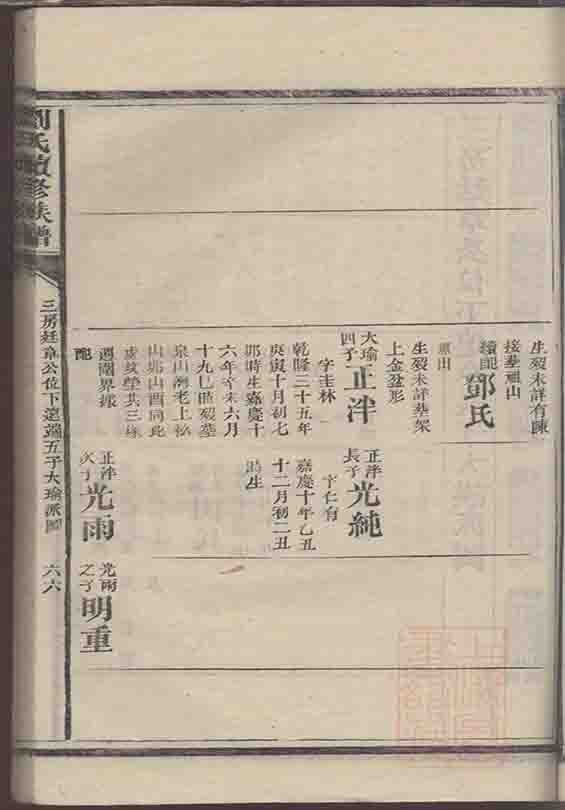 生歿未詳有陳
接葬祖山
續配鄧氏
生歿未詳葬架
上金盆形
大瑜四子正泮
字圭林
乾隆三十五年
庚寅十月初七
卯時生嘉慶十
六年辛未六月
十九巳時歿葬
泉山灣老上衫
山卯山酉同此
虎紋塋共三塚
週圍界據
配
正泮長子光純
字仁育
嘉慶十年乙丑
十二月初二丑
時生
正泮次子光雨
光雨之子明重
劉氏敦修族譜
三房廷章公位下遠端五子大瑜派圖
六六